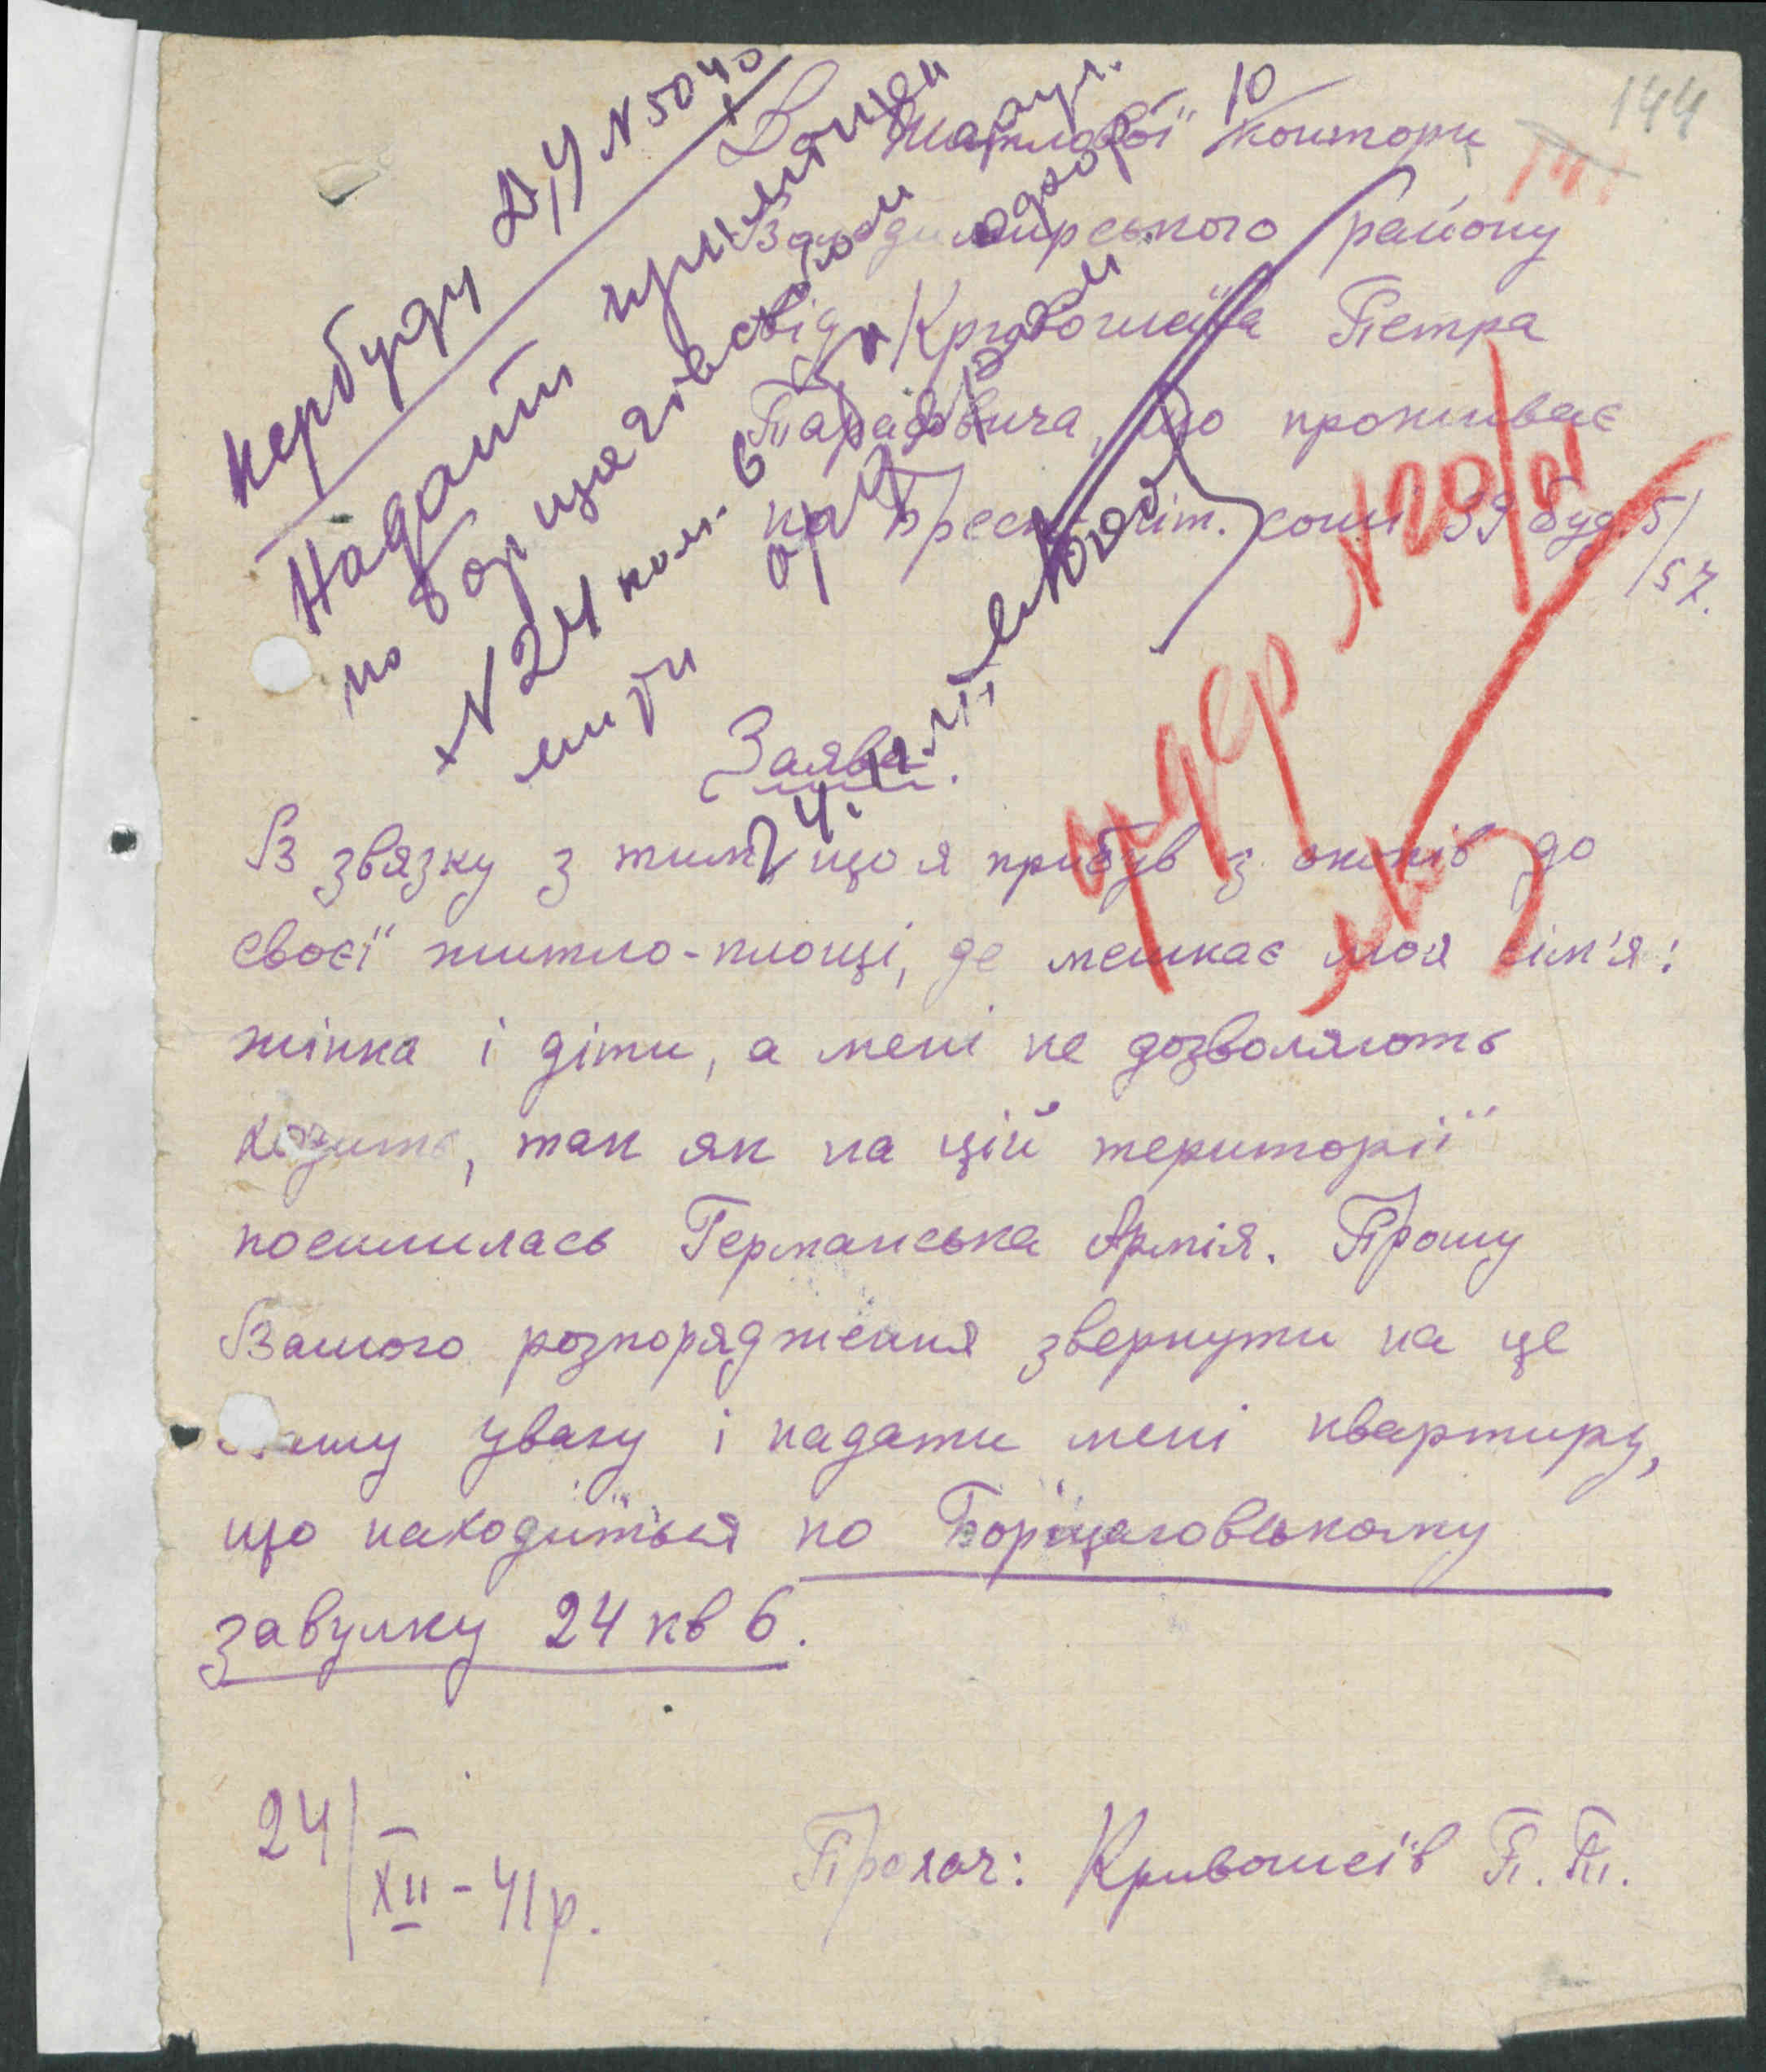 144
Кербуду Д/У N 5040
Надати приміщен
по Борщагівській вул.
N 24 пом. 6
ордер N 20/01
До Житлової контори
Володимирського району
від Кривошеїва Петра
Тарасовича, що проживає
на Брест-Літ. шосі 39 буд. 5/
57.
Заява.
В звязку з тим, що я прибув з окопів до
своєї житло-площі, де мешкає моя сім'я:
жінка і діти, а мені не дозволяють
ходить, так як на цій території
поселилась Германська Армія. Прошу
Вашого розпорядження звернути на це
увагу і надати мені квартиру,
що находиться по Борщаговському
завулку 24 кв 6.
24/XII-41р.
Прохач: Кривошеїв П. Т.